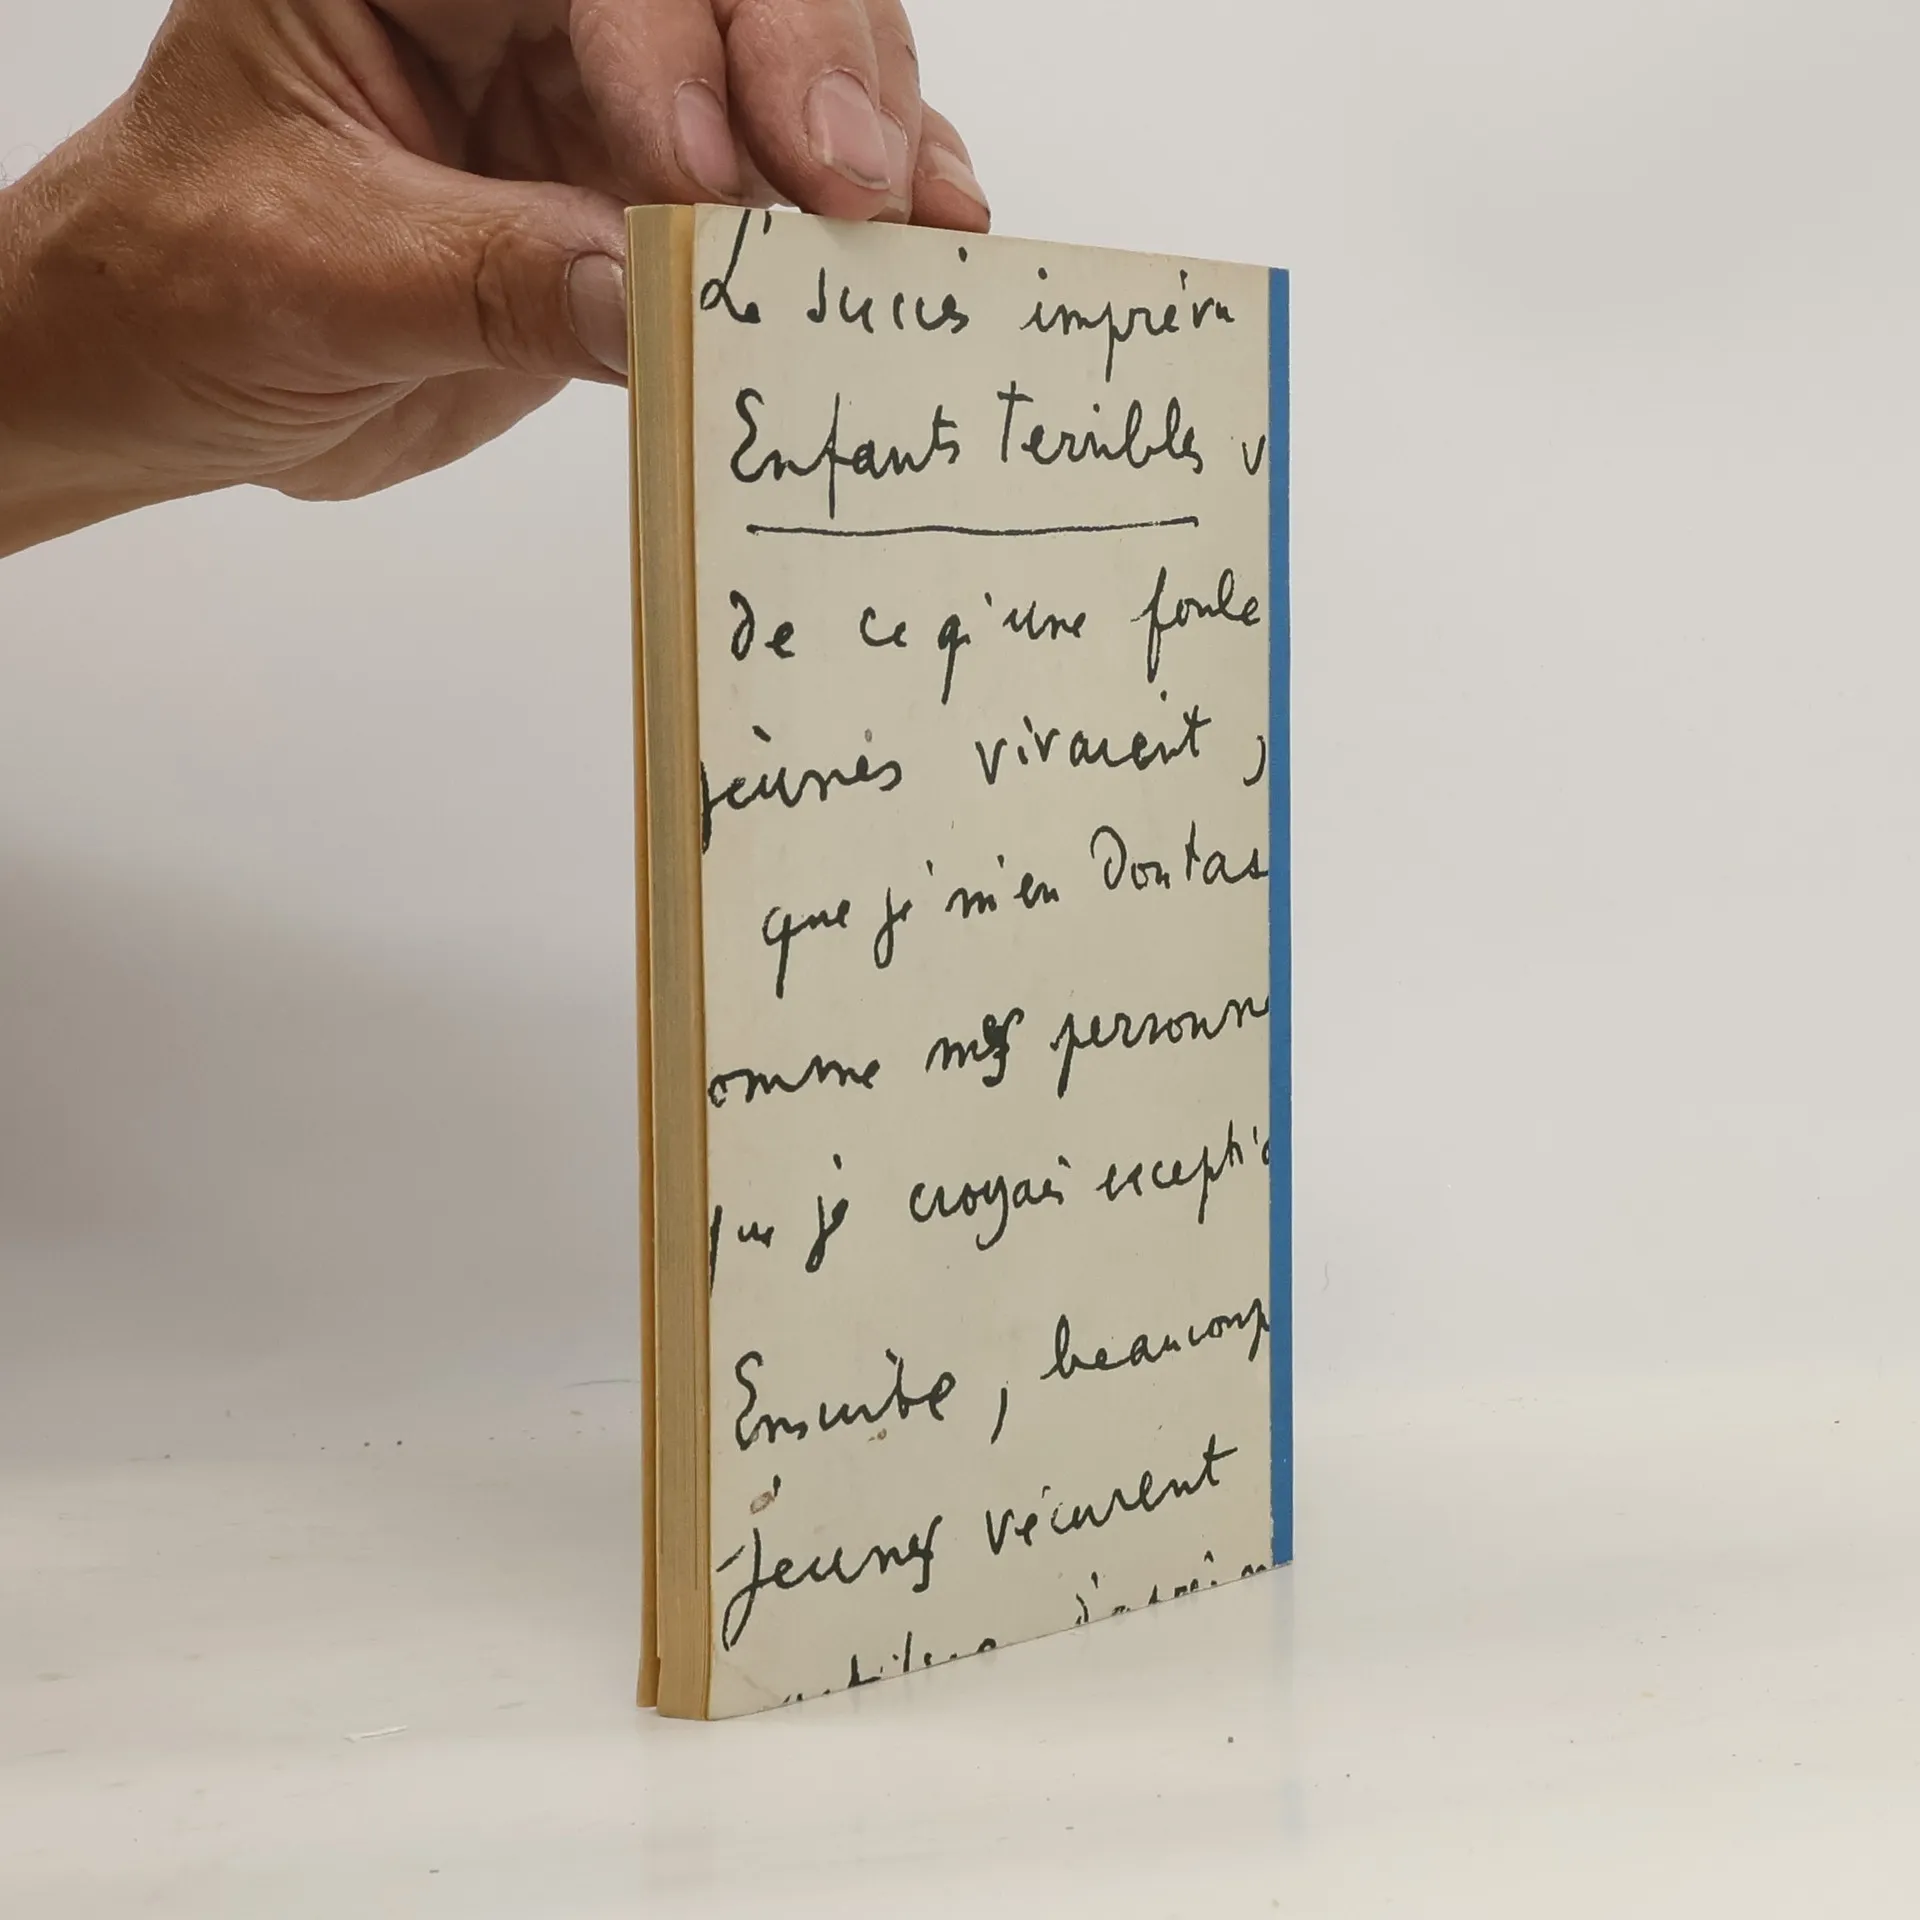 Le succès imprévu
Enfants Terribles v
de ce qu'une foule
jeunes vivaient,
que je m'en doutas
omme mes personne
que je croyais exceptio
Ensuite, beaucoup
jeunes vécurent